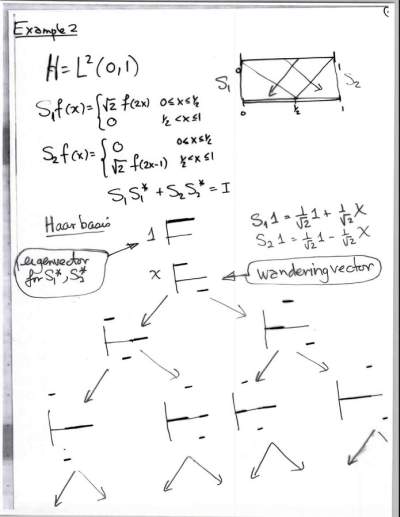 Example 2
H = L²(0,1)
S₁f(x) = { √2 f(2x) 0≤x≤½
0 ½<x≤1
S₂f(x) = { 0 0≤x≤½
√2 f(2x-1) ½<x≤1
S₁S₁* + S₂S₂* = I
0 1
S₁ S₂
0 ½ 1
Haar basis
S₁1 = 1/√2 1 + 1/√2 X
S₂1 = 1/√2 1 - 1/√2 X
1
eigenvector
for S₁*, S₂*
X
wandering vector